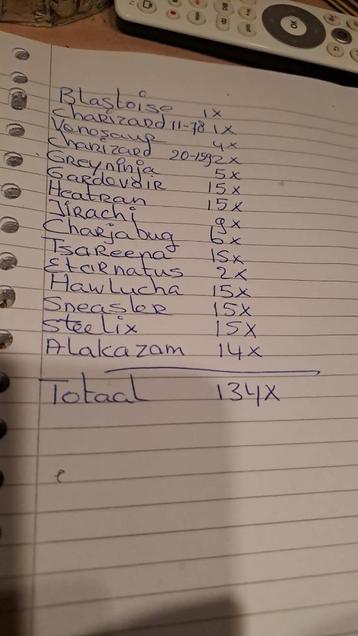 Blastoise 1x
Charizard 11-78 1x
Venosaur 4x
Charizard 20-159 2x
Greyninja 5x
Gardevoir 15x
Heatran 15x
Jirachi 9x
Charjabug 6x
Tsareena 15x
Eternatus 2x
Hawlucha 15x
Sneasler 15x
Steelix 15x
Alakazam 14x
Totaal 134x